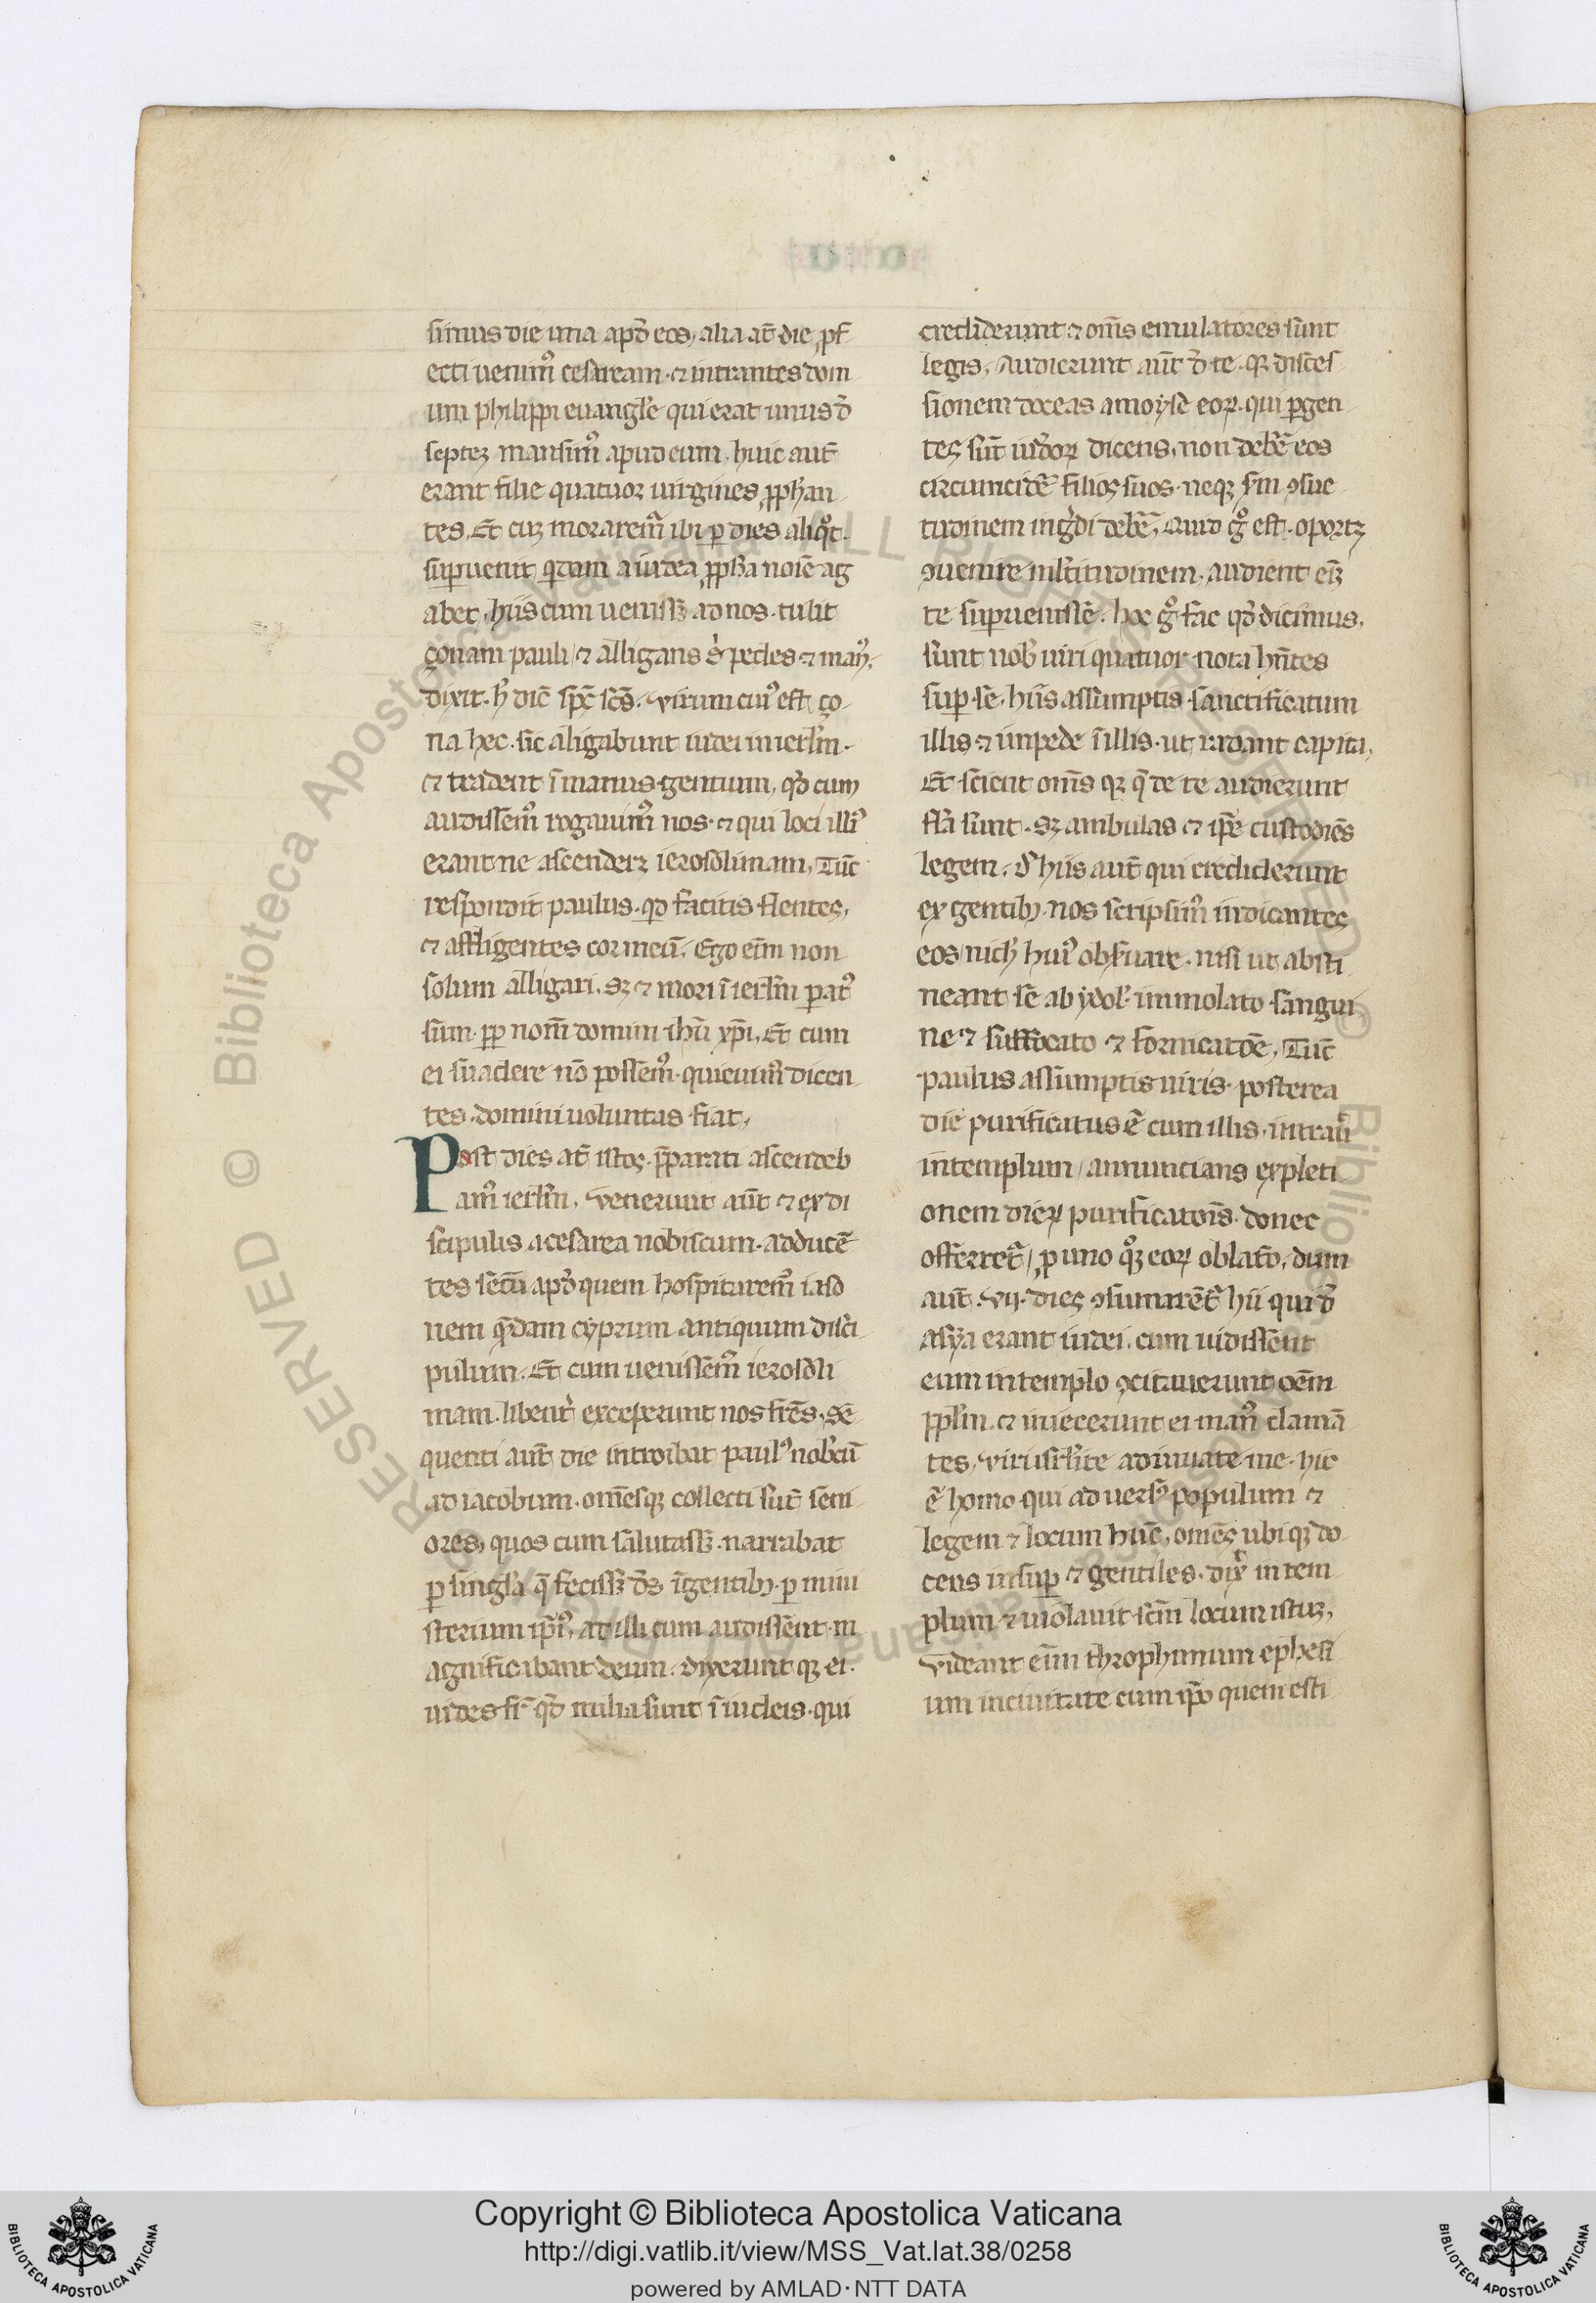 simus die una apud eos, alia at̄ die ꝓf
ecti uenim᷒ cesaream · ⁊ intrantes dom
um philippi euangl̄e qui erat unus d̄
septeꝫ mansim᷒ apud eum · huic aut̄
erant filie quatuor uirgines ꝓph̄an
tes, Et cuꝫ morarem᷒ ibi ꝑ dies aliqͦt ·
suꝑuenit qͥdam a iudea ꝓph̄a noīe ag
abet, hiis cum uenissꝫ ad nos · tulit
çonam pauli / ⁊ alligans s͛ pedes ⁊ man᷒,
dixit · h̄ dic̄ sp̄c sc̄s, virum cui᷒ est ço
na hec · sic aligabunt iudei in ierl̄m ·
⁊ tradent ī manus gentium, qd̄ cum
audissem᷒ rogauim᷒ nos · ⁊ qui loci illi᷒
erant ne ascenderꝫ ierosolimam, Tūc
respondit paulus · qͥd facitis flentes,
⁊ affligentes cor meū, Ego eīm non
solum alligari, sꝫ ⁊ mori ī ierl̄m ꝑat᷒
sum · ꝓp nom̄ domini ih̄u xp̄i, Et cum
ei suadere nō possem᷒ · quieuim᷒ dicen
tes · domini uoluntas fiat,
Post dies at̄ istos · p̄parati ascendeb
am᷒ ierl̄m, venerunt aūt ⁊ ex di
scipulis a cesarea nobiscum · adducē
tes secū apd̄ quem hospitarem᷒ iaso
nem qͥdam cyprum antiquum disci
pulum, Et cum uenissem᷒ ierosoli
mam · libent͛ exceperunt nos fr̄es, Se
quenti aūt die introibat paul᷒ nobcū
ad iacobum · omēsqꝫ collecti sūt seni
ores, quos cum salutassꝫ · narrabat
ꝑ singl̄a q̄ fecissꝫ d̄s ī gentibꝫ · ꝑ mini
sterium ip̄i᷒, at illi cum audissent · m
agnificabant deum, dixerunt qꝫ ei ·
uides fr̄ qͦd milia sunt ī iudeis · qui
crediderunt ⁊ om̄s emulatores sunt
legis, Audierunt aūt d̄ te · qꝛ disces
sionem doceas a moyse eoꝝ · qui ꝑ gen
tes sūt iudeoꝝ dicens, non deb̄e eos
circuncid̄e filios suos · neqꝫ s̄m ꝯsue
tudinem ing͛di deb̄e, Quid gͦ est · oportꝫ
ꝯuenire multitudinem, audient eīꝫ
te suꝑuenisse, hoc gͦ fac qd̄ dicimus,
sunt nob̄ uiri quatuor · uota hn̄tes
suꝑ se, hiis assumptis · sanctificatum
illis ⁊ impede ī illis · ut radant capita,
Et scient om̄s qꝛ q̄ de te audierunt
fl̄a sunt · sꝫ ambulas ⁊ ip̄e custodiēs
legem, d̄ hiis aūt qui crediderunt
ex gentibꝫ · nos scripsim᷒ iudicantes
eos / nich̄ hui᷒ obs̄uare · nisi ut absti
neant se ab ydol̄ · immolato · sangui
ne ⁊ suffocato ⁊ fornicatōe, Tūc
paulus assumptis uiris · posterea
die purificatus ē cum illis, intrauͥ
in templum / annuncians expleti
onem dieꝝ purificatōis · donec
offerret᷒ / ꝓ uno qͦqꝫ eoꝝ oblatō, dum
aūt · vij · dies ꝯsumarēt᷒ hii qui d̄
asya erant iudei, cum uidissent
eum in templo ꝯcitauerunt oēm
ppl̄m · ⁊ iniecerunt ei man᷒ clamā
tes, viri isrl̄ite adiuuate me · hic
ē homo qui aduers᷒ populum ⁊
legem ⁊ locum hūc, omēs ubiqꝫ do
cens insuꝑ ⁊ gentiles · dix͛ in tem
plum ⁊ uiolauit sc̄m locum istuꝫ,
videant eīm throphimum ephesi
um in ciuitate cum ip̄o quem esti
Copyright © Biblioteca Apostolica Vaticana
http://digi.vatlib.it/view/MSS_Vat.lat.38/0258
powered by AMLAD·NTT DATA
BIBLIOTECA APOSTOLICA VATICANA
BIBLIOTECA APOSTOLICA VATICANA